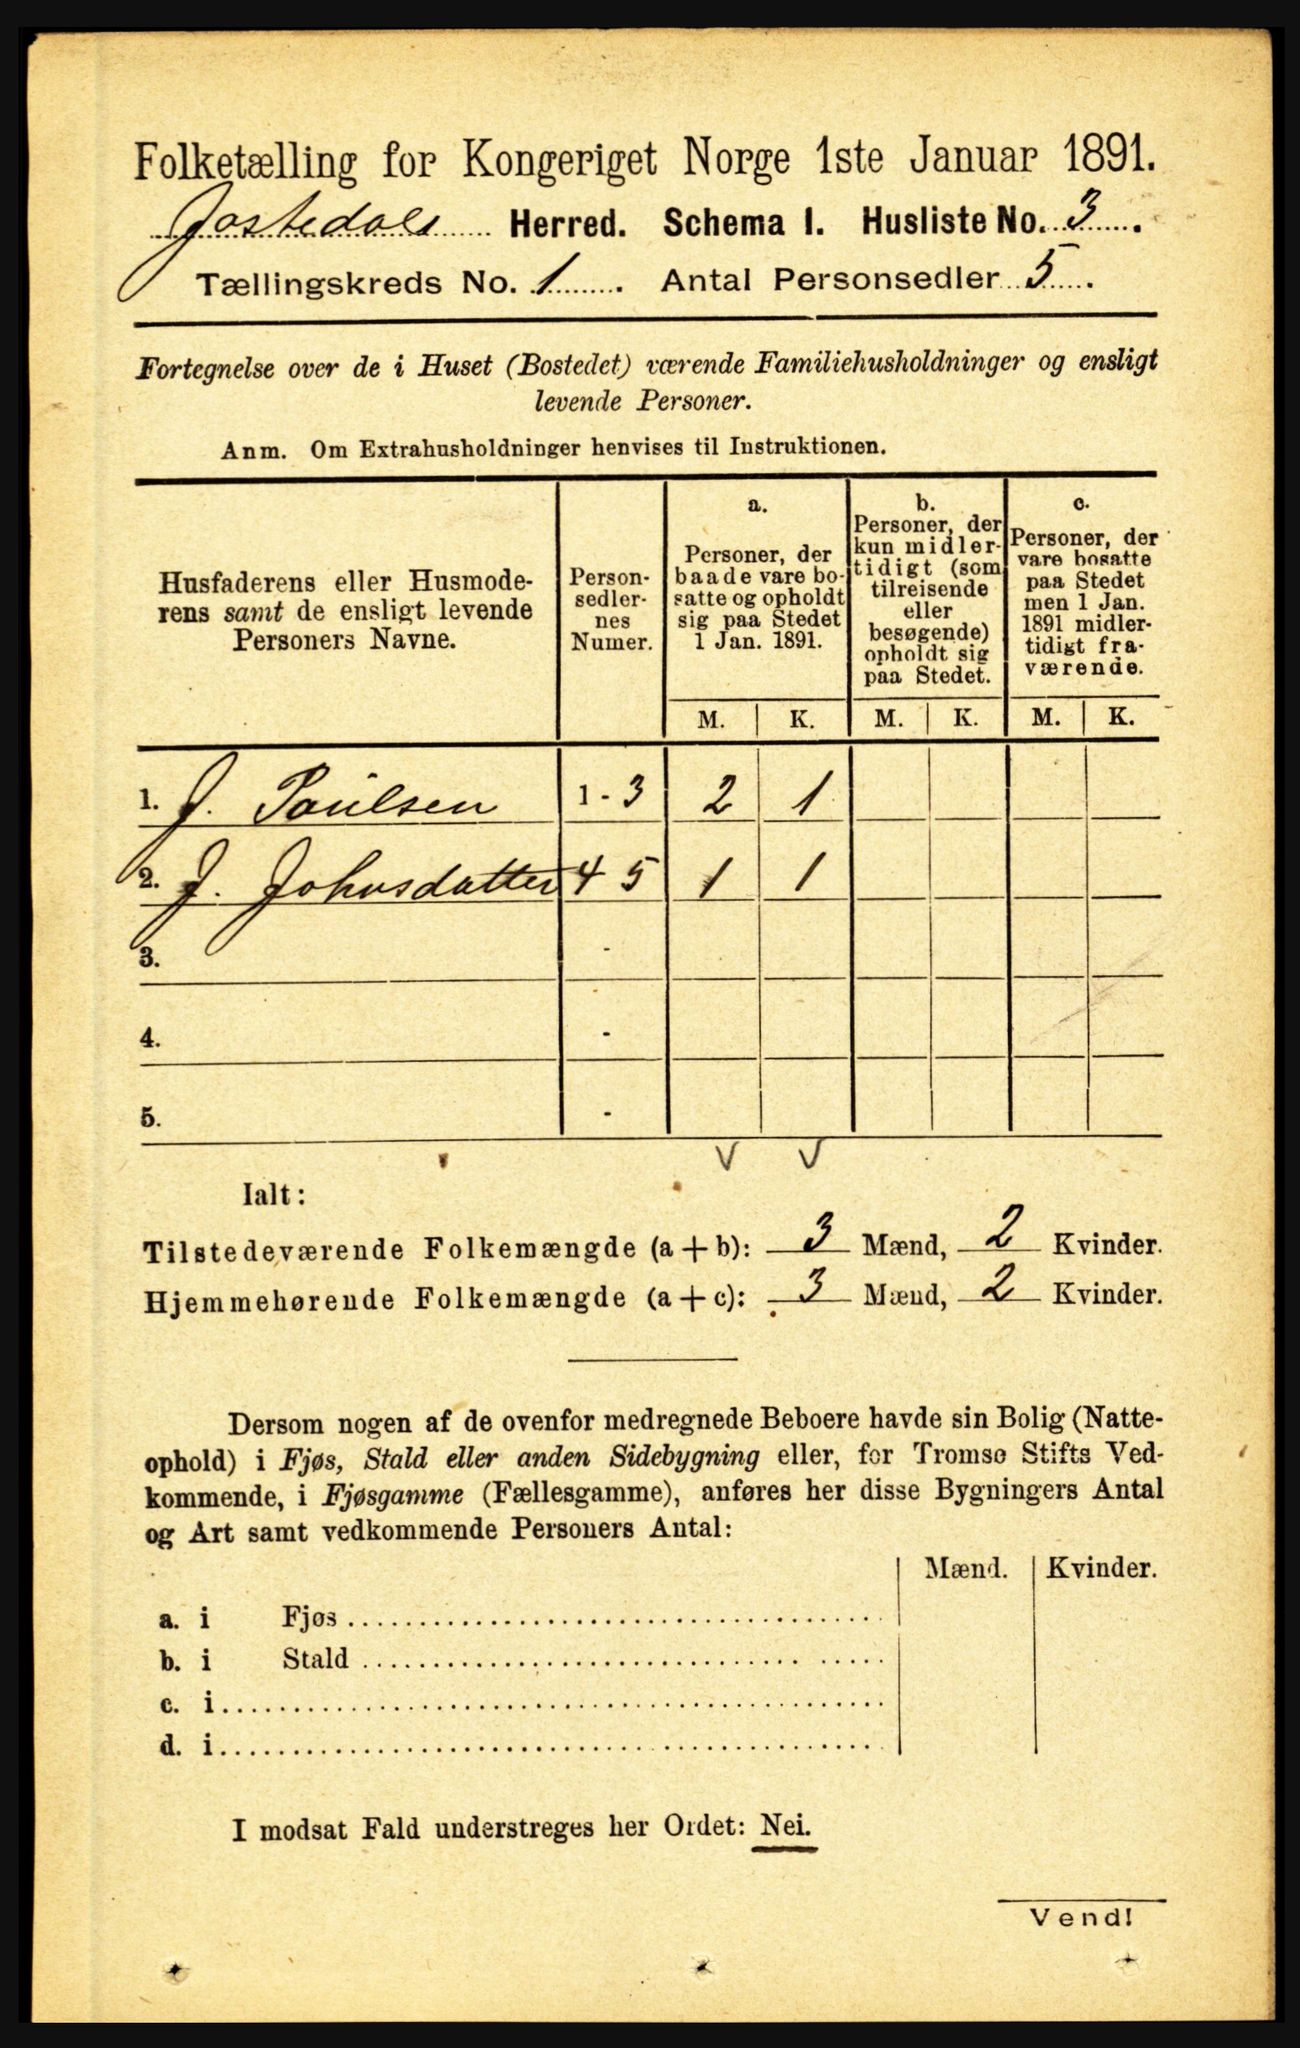 Folketælling for Kongeriget Norge 1ste Januar 1891.
Jostedals Herred. Schema I. Husliste No. 3.
Tællingskreds No. 1. Antal Personsedler 5.
Fortegnelse over de i Huset (Bostedet) værende Familiehusholdninger og ensligt
levende Personer.
Anm. Om Extrahusholdninger henvises til Instruktionen.
Husfaderens eller Husmode-
rens samt de ensligt levende
Personers Navne.
Person-
sedler-
nes
Numer.
a.
Personer, der
baade vare bo-
satte og opholdt
sig paa Stedet
1 Jan. 1891.
b.
Personer, der
kun midler-
tidigt (som
tilreisende
eller
besøgende)
opholdt sig
paa Stedet.
c.
Personer, der
vare bosatte
paa Stedet
men 1 Jan.
1891 midler-
tidigt fra-
værende.
M. K. M. K. M. K.
1. J. Paulsen 1 - 3 2 1
2. J. Johnsdatter 4 5 1 1
3. -
4. -
5. -
Ialt:
Tilstedeværende Folkemængde (a + b): 3 Mænd, 2 Kvinder.
Hjemmehørende Folkemængde (a + c): 3 Mænd, 2 Kvinder.
Dersom nogen af de ovenfor medregnede Beboere havde sin Bolig (Natte-
ophold) i Fjøs, Stald eller anden Sidebygning eller, for Tromsø Stifts Ved-
kommende, i Fjøsgamme (Fællesgamme), anføres her disse Bygningers Antal
og Art samt vedkommende Personers Antal:
Mænd. Kvinder.
a. i Fjøs
b. i Stald
c. i
d. i
I modsat Fald understreges her Ordet: Nei.
Vend!